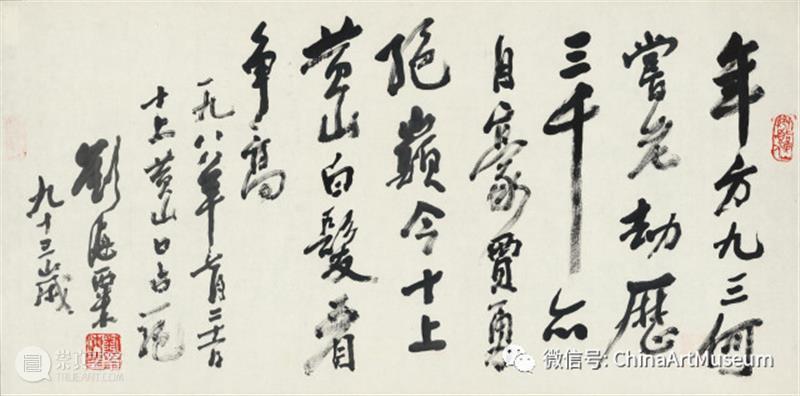 年方九三何
嘗老劫歷
三千亦
自豪賈勇
絕巔今十上
黃山白髮看
爭高
一九八八年月二十日
十上黃山口占一絕
劉海粟
九十三歲
崇真艺客
TRUEART.COM
微信号: ChinaArtMuseum